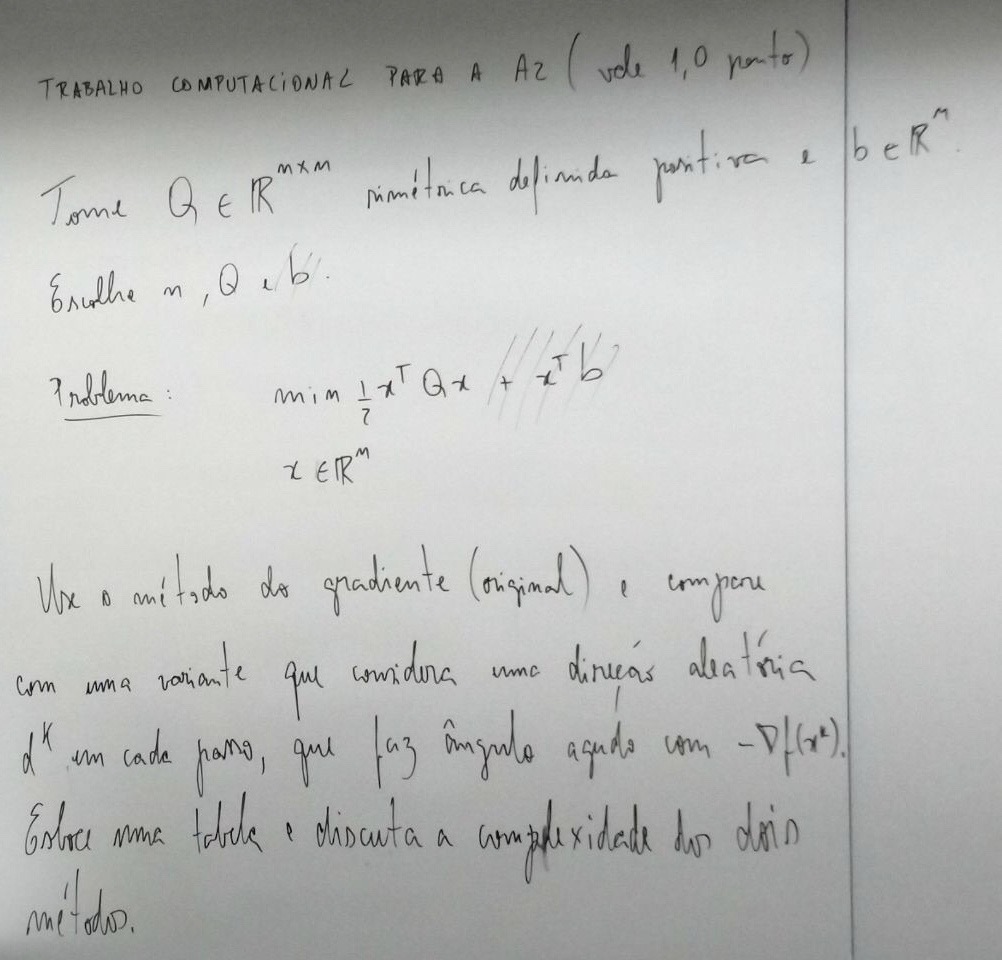 TRABALHO COMPUTACIONAL PARA A A2 (vale 1,0 ponto)
Tome Q ∈ ℝⁿˣⁿ simétrica definida positiva e b ∈ ℝⁿ.
Escolha n, Q e b.
Problema: min ½ xᵀQx + xᵀb
x ∈ ℝⁿ
Use o método do gradiente (original) e compare
com uma variante que considera uma direção aleatória
dᵏ em cada passo, que faz ângulo agudo com -∇f(xᵏ).
Esboce uma tabela e discuta a complexidade dos dois
métodos.